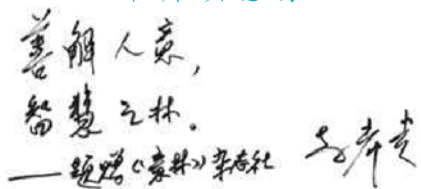 善解人意,
智慧之林。
——题赠《意林》杂志社